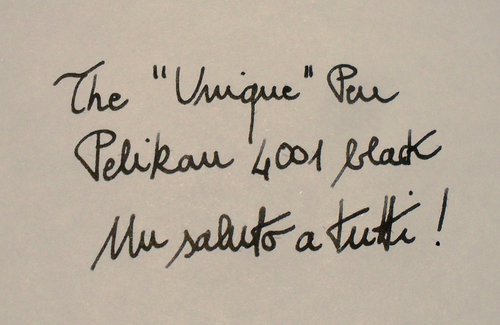 The "Unique" Pen
Pelikan 4001 black
Un saluto a tutti!